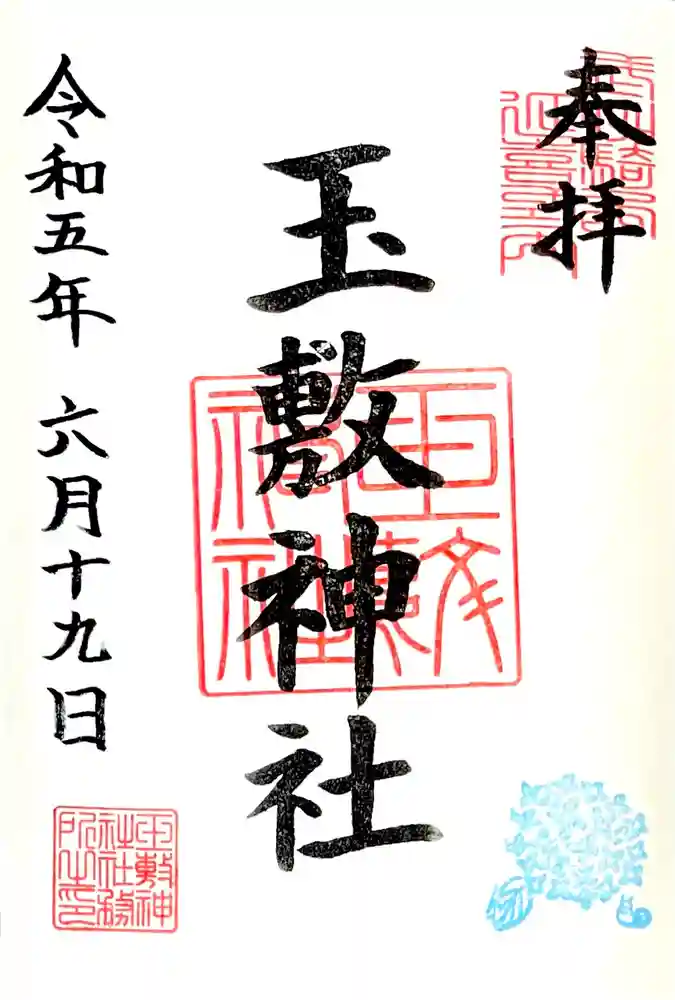 奉拝
玉敷神社
令和五年 六月十九日
玉敷神社
玉敷神社社務所之印